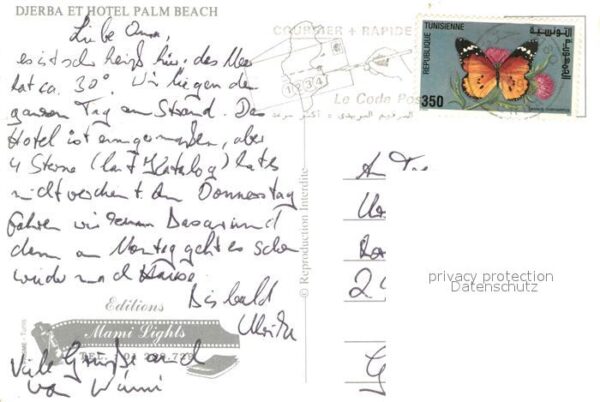 DJERBA ET HOTEL PALM BEACH
Liebe Oma,
es ist sehr heiß hier, das Meer
hat ca. 30°. Wir liegen den
ganzen Tag am Strand. Das
Hotel ist einigermaßen, aber
4 Sterne (laut Katalog) hat es
nicht verdient. Am Donnerstag
fahren wir zum Basar und
dann am Montag geht es schon
wieder nach Hause
Bis bald
Ulrike
Viele Grüße auch
von
Editions
Mami Lights
TEL.
© Reproduction Interdite
COURRIER + RAPIDE
1 2 3 4
Le Code Pos
الترقيم البريدي
RÉPUBLIQUE TUNISIENNE
الجمهورية التونسية
350
An
2
privacy protection
Datenschutz